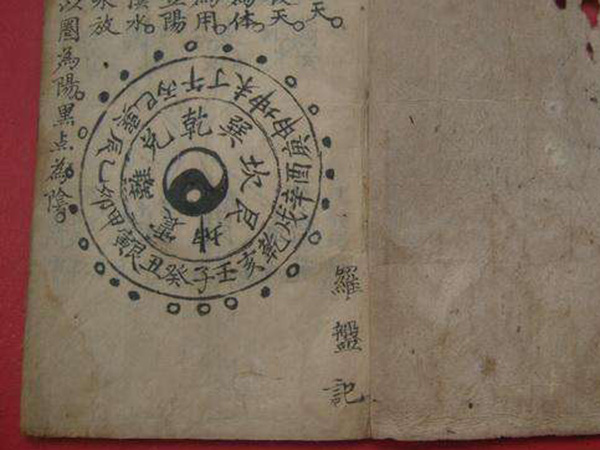 天。
天。
為体。
為用。
陽
水。
放
以圈為陽。黑点為陰。
乾巽坎艮坤震離兌
子癸丑艮寅甲卯乙辰巽巳丙午丁未坤申庚酉辛戌乾亥壬
羅盤記